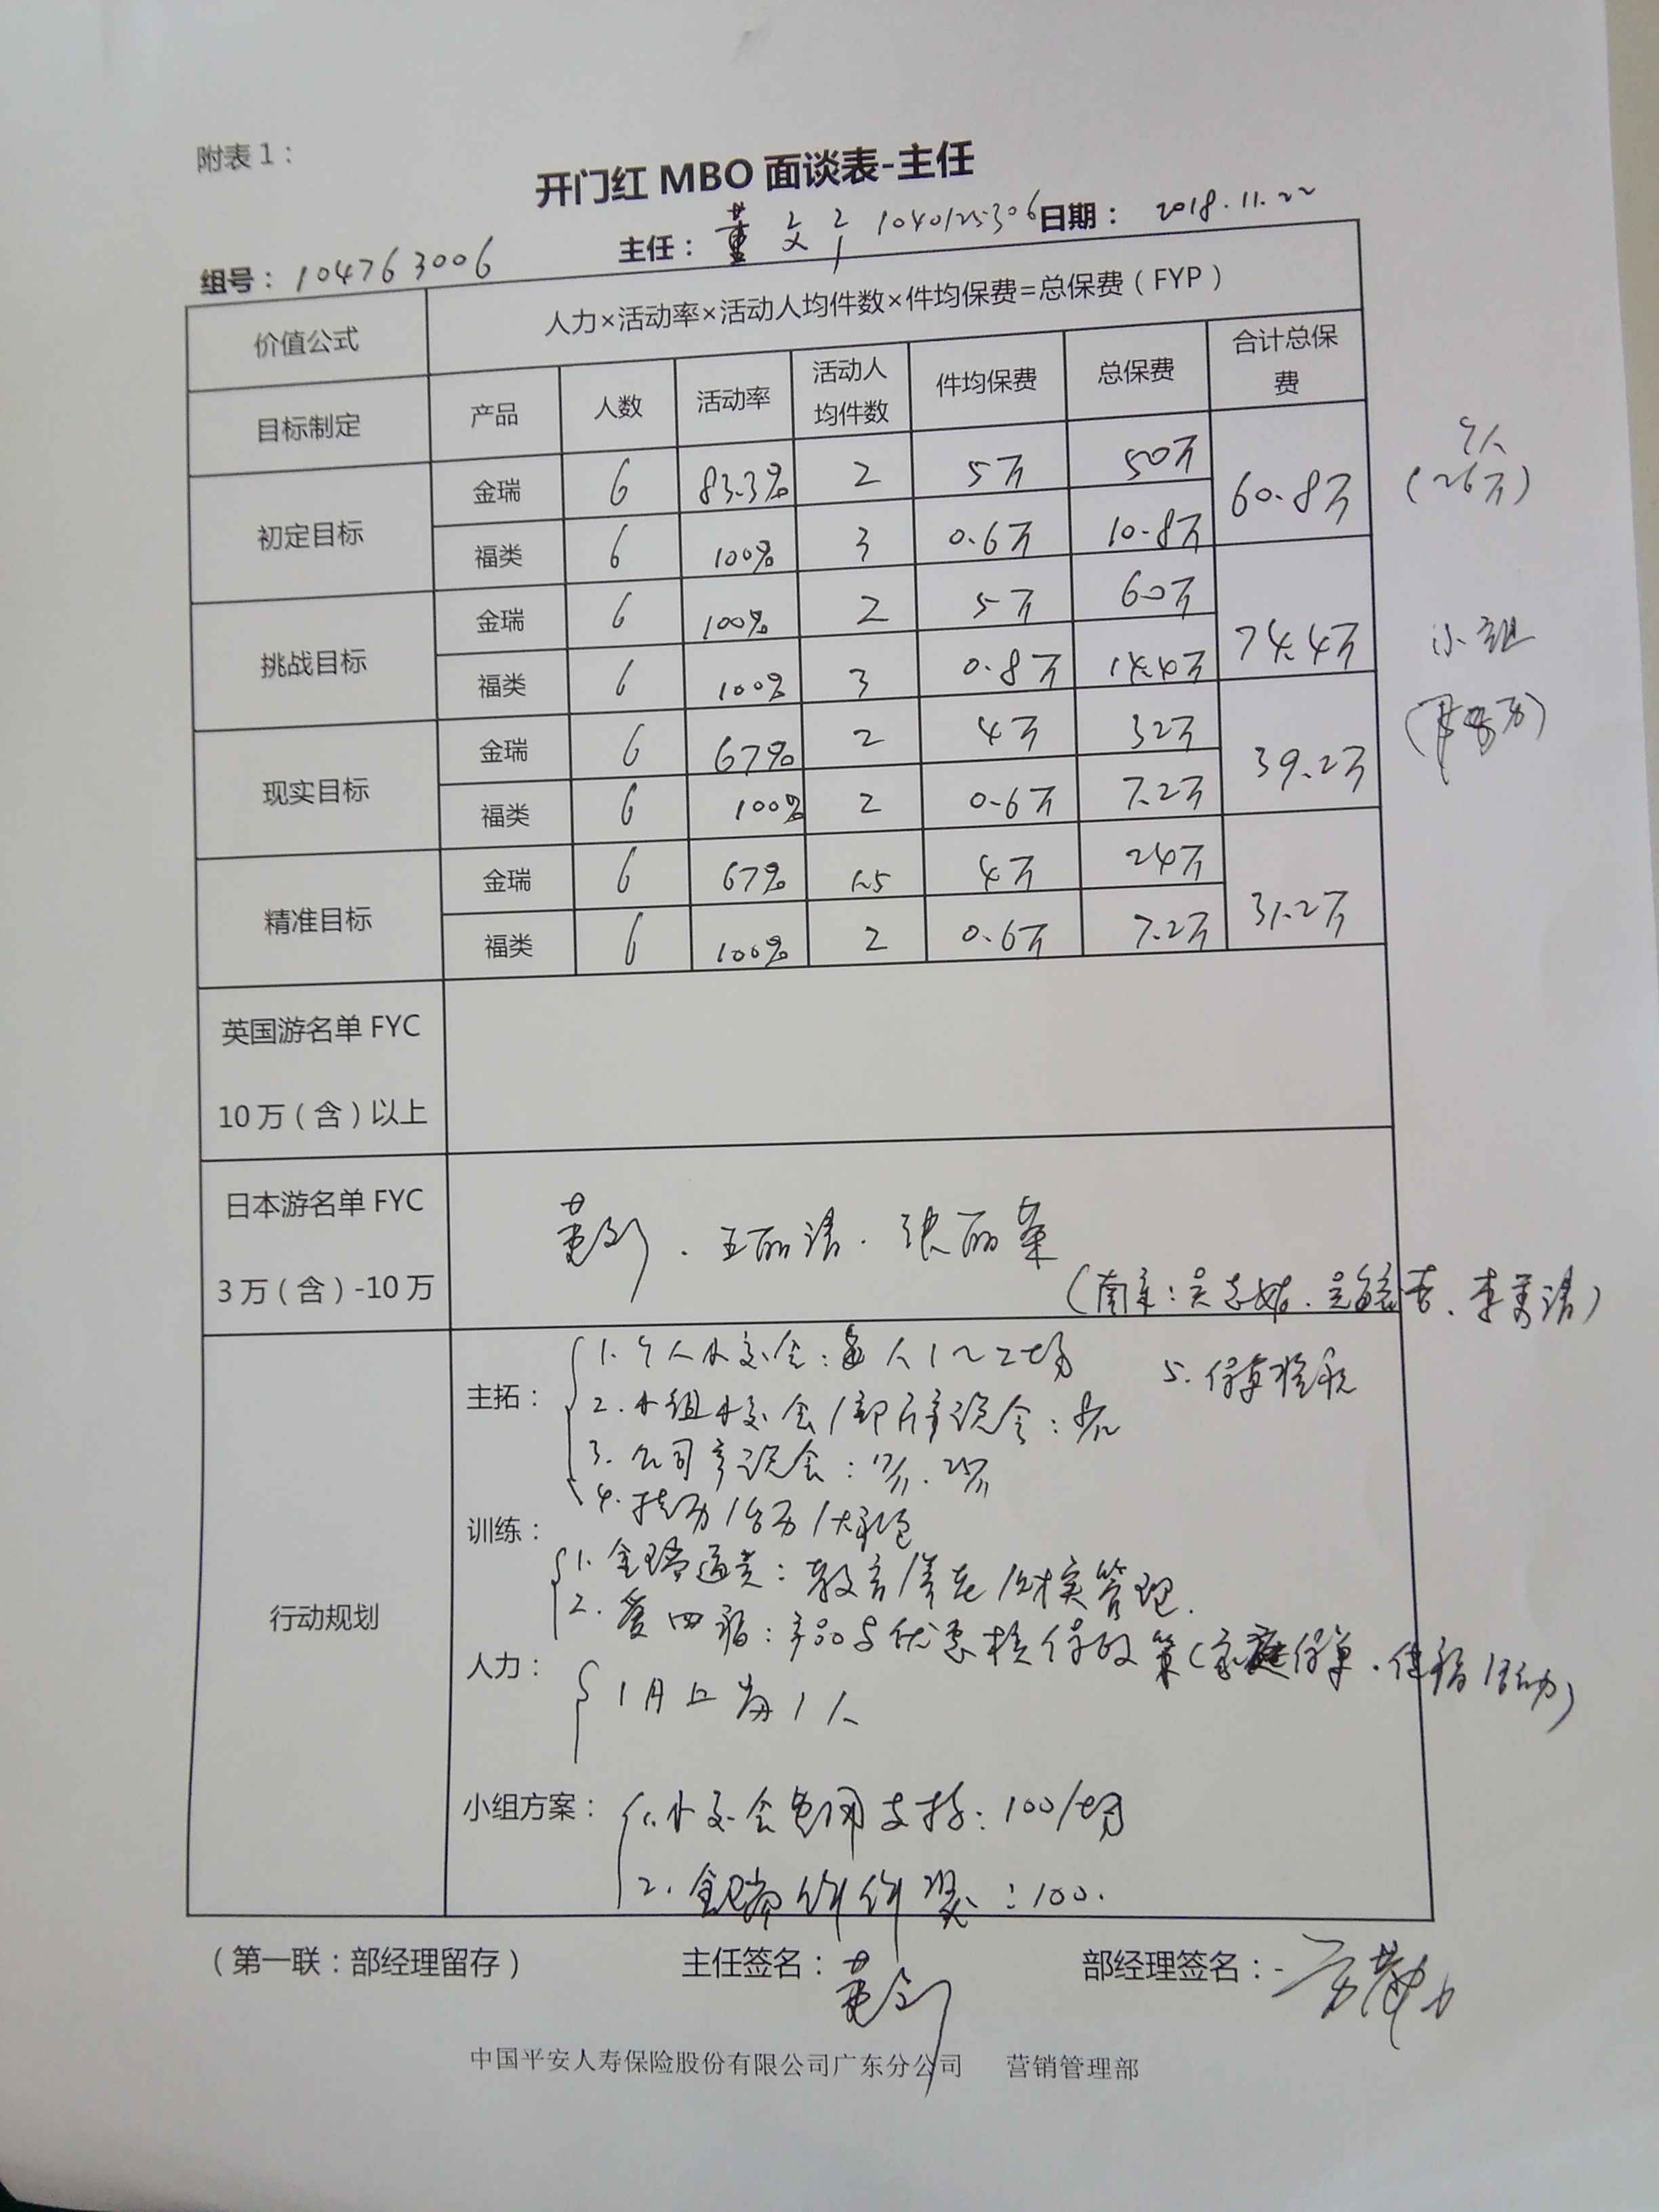 附表1：
开门红 MBO 面谈表-主任
组号：104763006 主任：董文 1040125306 日期：2018.11.22
价值公式 人力×活动率×活动人均件数×件均保费=总保费（FYP）
目标制定 产品 人数 活动率 活动人均件数 件均保费 总保费 合计总保费
初定目标 金瑞 6 83.3% 2 5万 50万 60.8万
福类 6 100% 3 0.6万 10.8万
个人
（26万）
挑战目标 金瑞 6 100% 2 5万 60万 74.4万
福类 6 100% 3 0.8万 14.4万
小组
现实目标 金瑞 6 67% 2 4万 32万 39.2万
福类 6 100% 2 0.6万 7.2万
精准目标 金瑞 6 67% 1.5 4万 24万 31.2万
福类 6 100% 2 0.6万 7.2万
英国游名单 FYC
10万（含）以上
日本游名单 FYC
3万（含）-10万
王丽
张丽
行动规划
主拓：
1. 个人小交会：每人1~2场
2. 小组小交会/部产说会：
3. 公司产说会：
4.
5. 保单检视
训练：
1. 金瑞 ：教育/养老/财富管理.
2. 爱四福：产品与优惠核保政策（家庭保单. 活动）
人力：
1月上岗1人
小组方案：
1. 小交会 支持：100/场
2. 金瑞件件奖：100.
（第一联：部经理留存） 主任签名： 部经理签名：
中国平安人寿保险股份有限公司广东分公司 营销管理部